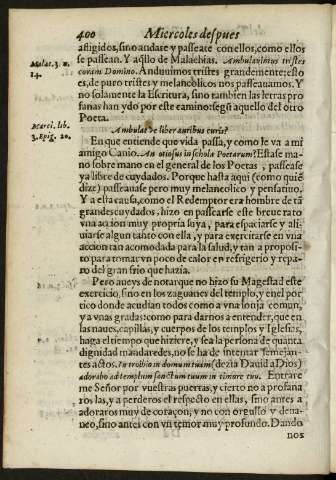 400 Miercoles despues
afligidos, sino andate y passeate con ellos, como ellos
se passean. Y aq̃llo de Malachias. Ambulauimus tristes
Malac. 3. n.
14.
coram Domino. Anduuimos tristes grandemente: esto
es, de puro tristes y melancolicos nos passeauamos. Y
no solamente la Escritura, sino tambien las letras pro
fanas han ydo por este camino: segũ aquello del otro
Poeta.
Marci. lib.
3. Epig. 20.
Ambulat & liber auribus
En que entiende que vida passa, y como le va a mi
amigo Canio. An otiosus in schola Poetarum? Està se ma
no sobre mano en el general de los Poetas, passease
ya libre de cuydados. Porque hasta aqui (como quiẽ
dize) passeauase pero muy melancolico y pensatiuo.
Y a esta causa, como el Redemptor era hombre de tã
grandes cuydados, hizo en passearse este breue rato
vna accion muy propria suya, para espaciarse y ali-
uiarse algun tanto con ella, y para exercitarse en vna
accion tan acomodada para la salud, y tan a proposi-
to para tomar vn poco de calor en refrigerio y repa-
ro del gran frio que hazia.
Pero aueys de notar que no hizo su Magestad este
exercicio, sino en los zaguanes del templo, y en el por
tico donde acudian todos como a vna lonja comun,
y a vnas gradas: como para darnos a entender, que en
las naues, capillas, y cuerpos de los templos y Iglesias,
haga el tiempo que hiziere, y sea la persona de quanta
dignidad mandaredes, no se ha de intentar semejan-
tes actos. Introibo in domum tuam (dezia Dauid a Dios)
adorabo ad templum sanctum tuum in timore tuo. Entrarè
me Señor por vuestras puertas, y cierto no a profana
ros las, y a perderos el respeto en ellas, sino antes a
adoraros muy de coraçon, y no con orgullo y deua-
neo, sino antes con vn temor muy profundo. Dando
nos